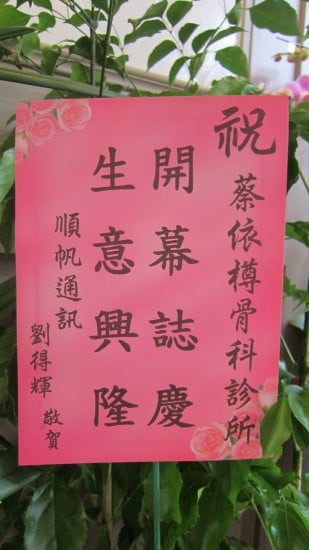 祝
蔡依樽骨科診所
開幕誌慶
生意興隆
順帆通訊
劉得輝 敬賀